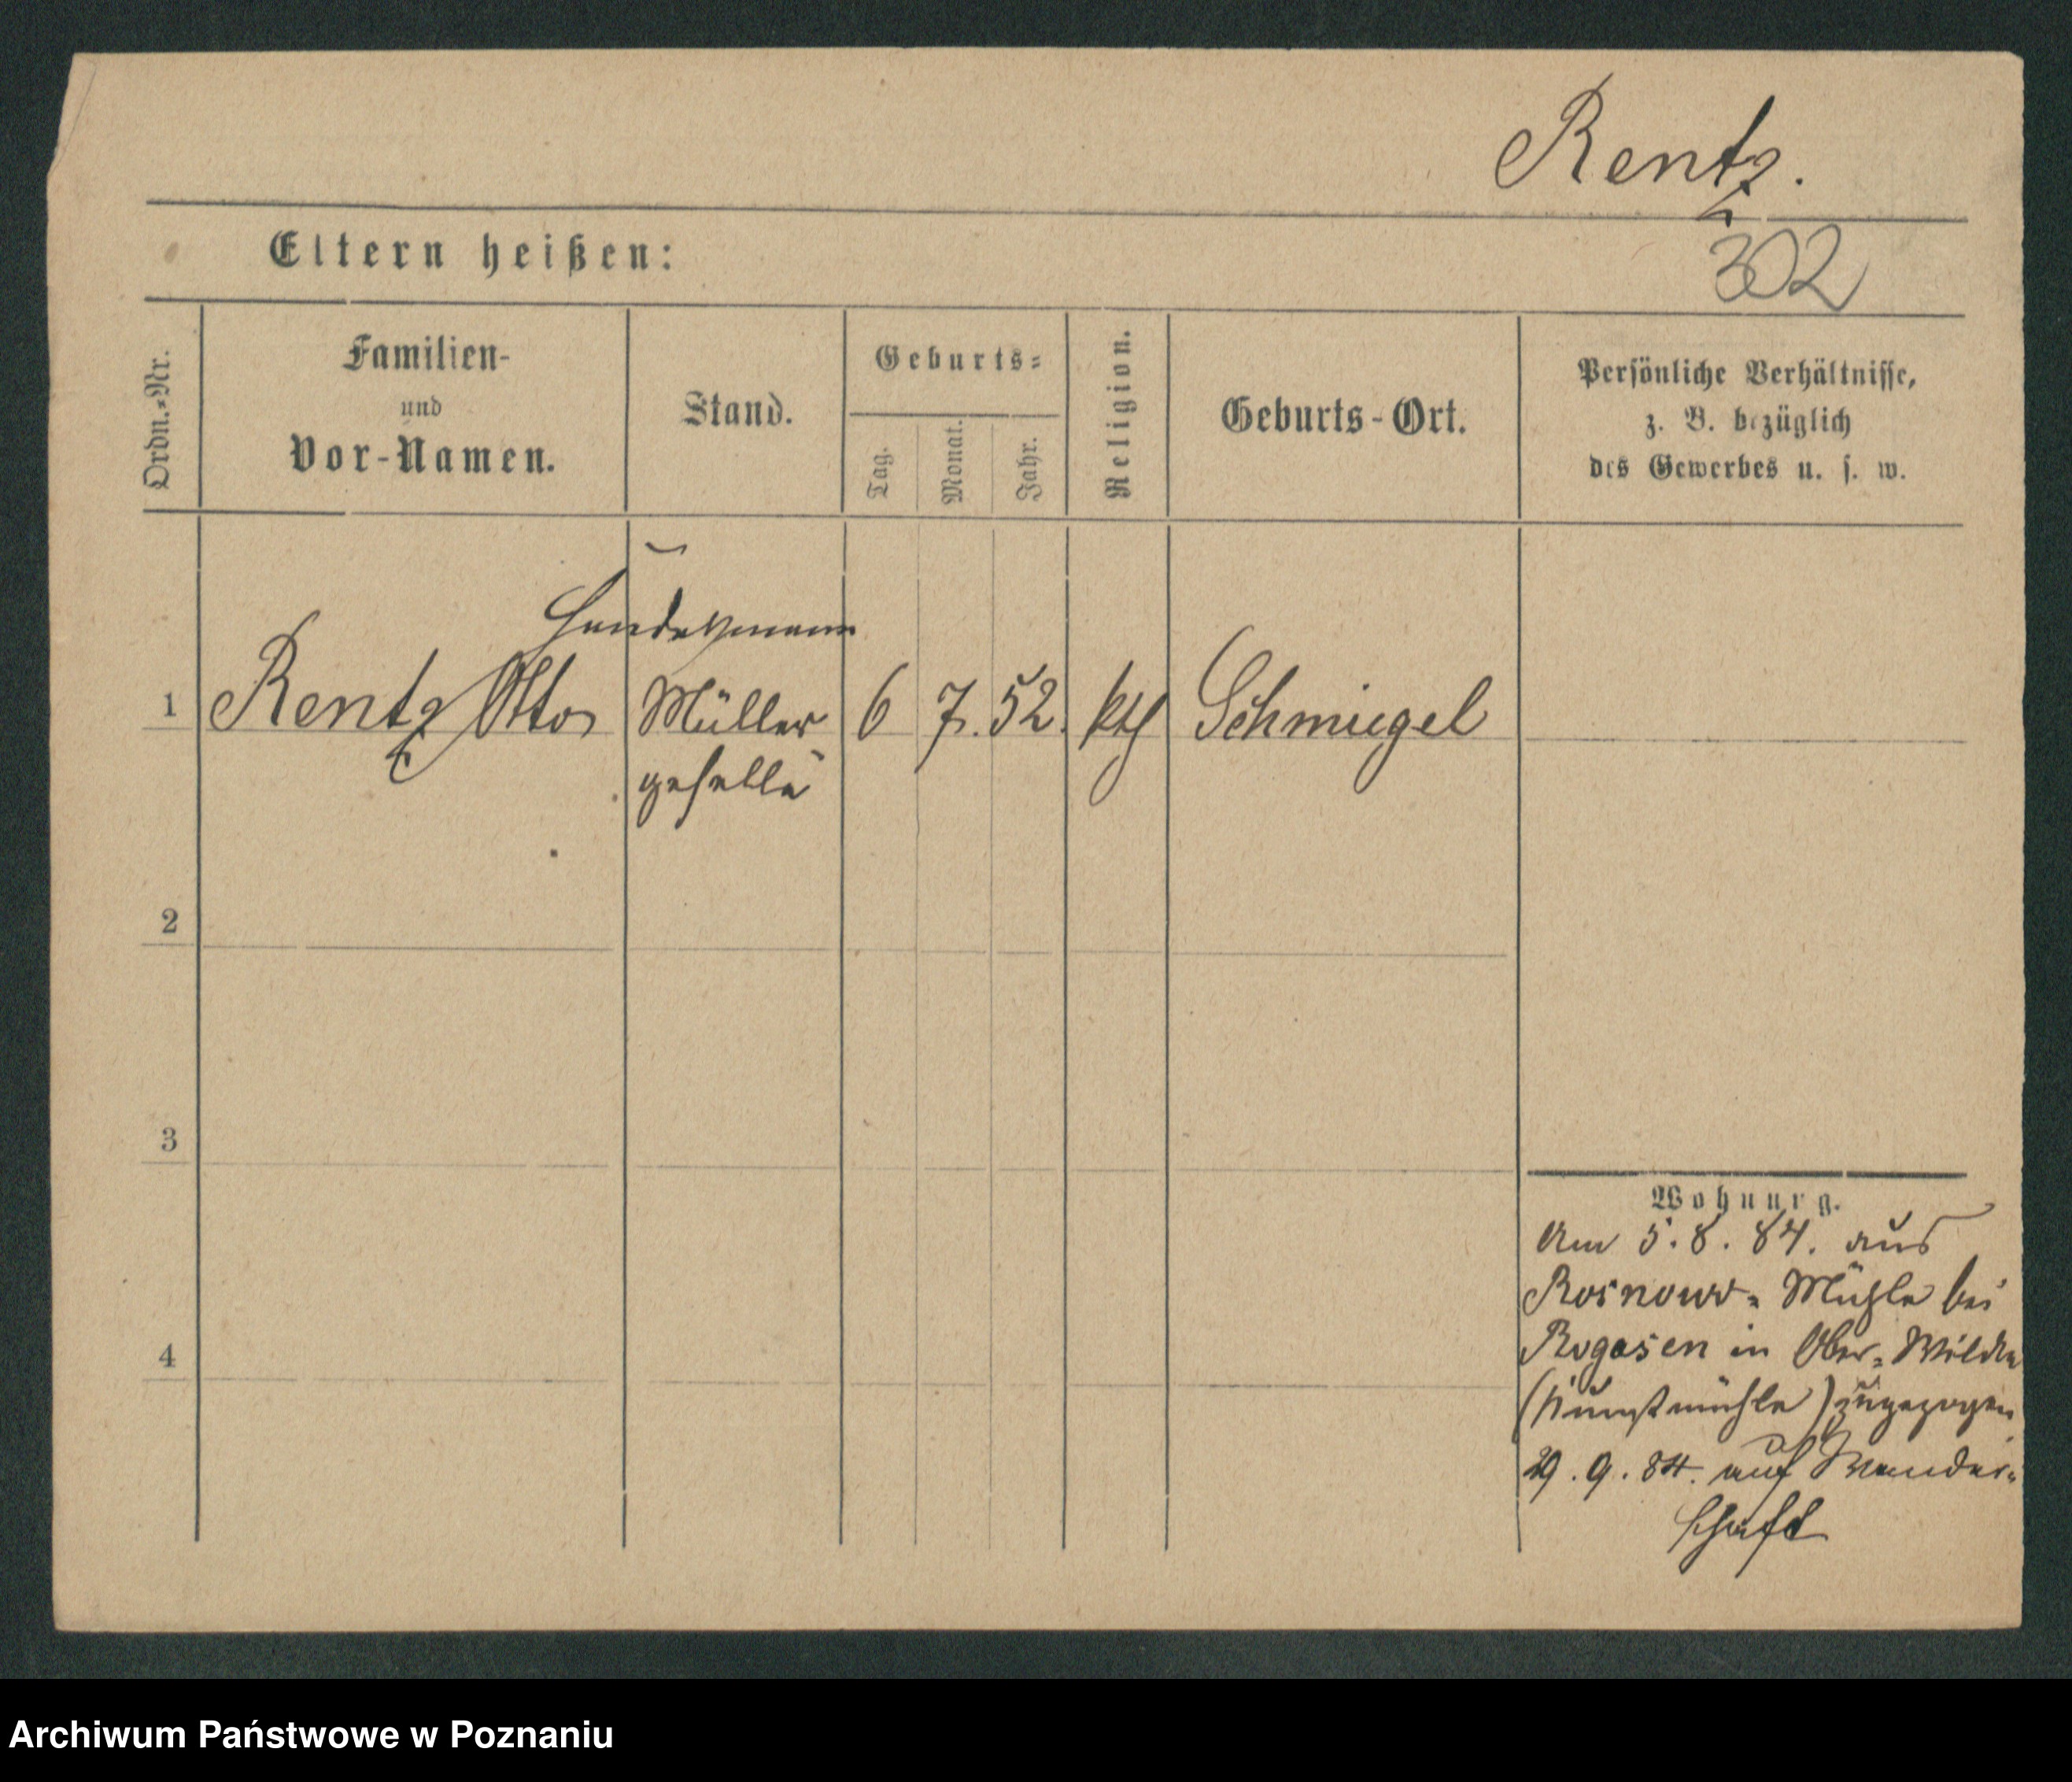 Rentz.
Eltern heißen:
302
Ordn.-Nr.
Familien-
und
Vor-Namen.
Stand.
Geburts-
Tag.
Monat.
Jahr.
Religion.
Geburts-Ort.
Persönliche Verhältnisse,
z. B. bezüglich
des Gewerbes u. s. w.
1 Rentz Otto Müller 6 7. 52. kth Schmiegel
geselle
2
3
4
Wohnung.
Am 5.8.84. aus
Rosnowo-Mühle bei
Rogasen in Ober-Wilda
(Kunstmühle) zugezogen
29.9.84. auf Wander-
schaft
Archiwum Państwowe w Poznaniu